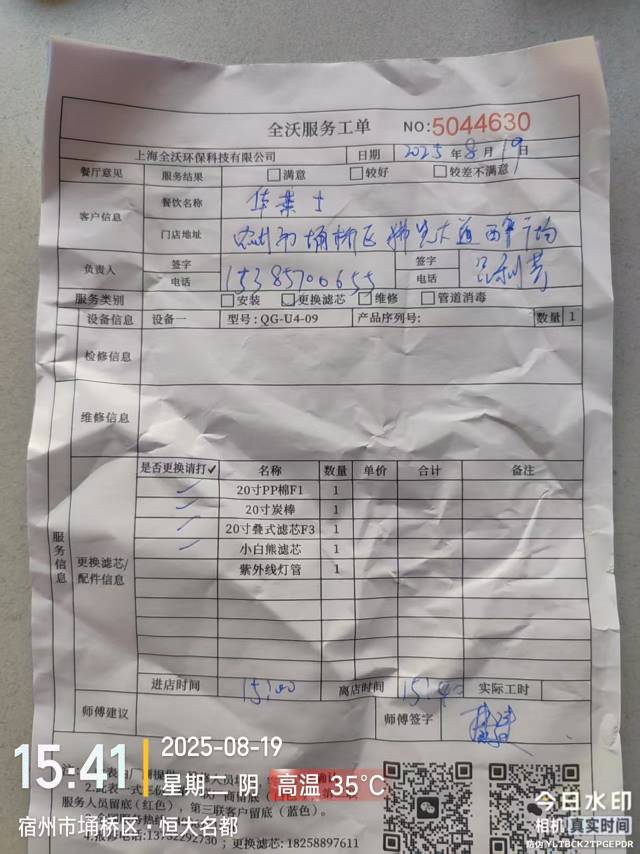 全沃服务工单 NO:5044630
上海全沃环保科技有限公司 日期 2025年8月19日
餐厅意见 服务结果 □满意 □较好 □较差不满意
客户信息 餐饮名称 华莱士
门店地址 宿州市埇桥区
负责人 签字 电话 15385700655 签字 电话
服务类别 □安装 □更换滤芯 □维修 □管道消毒
设备信息 设备一 型号:QG-U4-09 产品序列号: 数量 1
检修信息
维修信息
服务信息
更换滤芯/配件信息
是否更换请打✓ 名称 数量 单价 合计 备注
✓ 20寸PP棉F1 1
✓ 20寸炭棒 1
✓ 20寸叠式滤芯F3 1
✓ 小白熊滤芯 1
紫外线灯管 1
进店时间 15:00 离店时间 15:40 实际工时
师傅建议 师傅签字
服务人员留底(红色),第三联客户留底(蓝色)。
更换滤芯:18258897611
15:41 2025-08-19
星期二 阴 高温 35℃
宿州市埇桥区·恒大名都
今日水印
相机 真实时间
防伪 YLTBCK2TPGEPDR